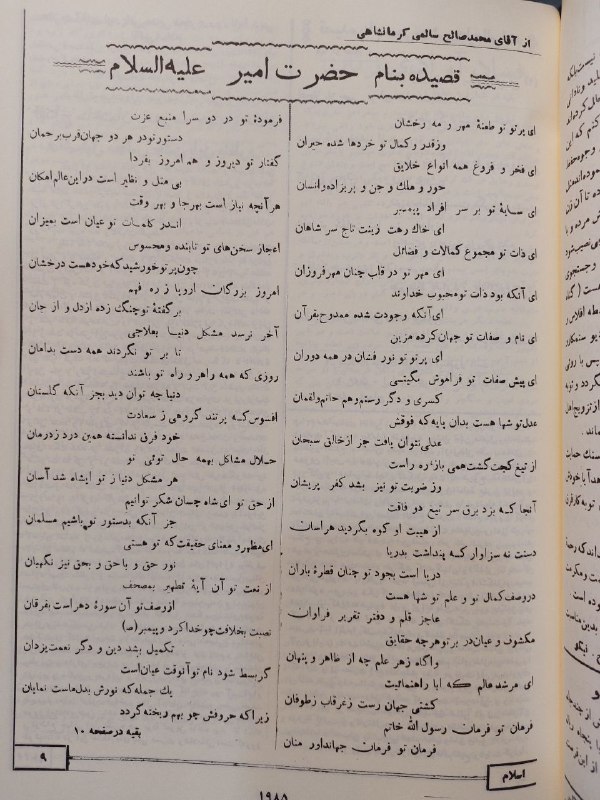 از آقای محمدصالح سالمی کرمانشاهی
قصیده بنام حضرت امیر علیه السلام
ای پرتو تو طعنهٔ مهر و مه رخشان
وزقدر و کمال تو خردها شده حیران
ای فخر و فروغ همه انواع خلایق
حور و ملك و جن و پریزاده وانسان
ای سایهٔ تو بر سر افراد پیمبر
ای خاك رهت زینت تاج سر شاهان
ای ذات تو مجموع کمالات و فضائل
ای مهر تو در قلب چنان مهرفروزان
ای آنکه بود ذات تو محبوب خداوند
ای آنکه وجودت شده ممدوح بقرآن
ای نام و صفات تو جهان کرده مزین
ای پرتو تو نور فشان در همه دوران
ای پیش صفات تو فراموش بگیتی
کسری و دگر رستم وهم حاتم ولقمان
عدل تو شها هست بدان پایه که فوقش
عدلی نتوان یافت جز از خالق سبحان
از تیغ کجت گشت همی بازره راست
وز ضربت تو نیز بشد کفر پریشان
آنجا که بزد برق سر تیغ دو فاقت
از هیبت او کوه بگردید هراسان
دستت نه سزاوار که پنداشت بدریا
دریا است بجود تو چنان قطرهٔ باران
دروصف کمال تو و علم تو شها هست
عاجز قلم و دفتر تقریر فراوان
مکشوف و عیان در بر تو هر چه حقایق
واگاه زهر علم چه از ظاهر و پنهان
ای مرشد عالم که ابا راهنمائیت
کشتی جهان رست زغرقاب زطوفان
فرمان تو فرمان رسول الله خاتم
فرمان تو فرمان جهانداور منان
فرمودهٔ تو در دو سرا منبع عزت
دستورتودر هر دو جهان قرب برحمان
گفتار تو دیروز و هم امروز بفردا
بی مثل و نظایر است دراین عالم امکان
هر آنچه نیاز است بهرجا و بهر وقت
اندر کلمات تو عیان است بمیزان
اعجاز سخن‌های تو تابنده ومحسوس
چون پرتو خورشید که خود هست درخشان
امروز بزرگان اروپا ز ره فهم
بر گفتهٔ تو چنگ زده از دل و از جان
آخر نرسد مشکل دنیا بعلاجی
تا بر تو نگردند همه دست بدامان
روزی که همه راهر و راه تو باشند
دنیا چه توان دید بجز آنکه گلستان
افسوس که پرتند گروهی ز سعادت
خود فرق ندانسته همین درد زدرمان
حلال مشاکل بهمه حال توئی تو
هر مشکل دنیا ز تو ایشاه شد آسان
از حق تو ای شاه چسان شکر توانیم
جز آنکه بدستور تو باشیم مسلمان
ای مظهر و معنای حقیقت که تو هستی
نور حق و باحق و بحق نیز نگهبان
از نعت تو آن آیهٔ تطهیر بمصحف
ازوصف تو آن سورهٔ دهر است بفرقان
نصبت بخلافت چو خداکرد و پیمبر (ص)
تکمیل بشد دین و دگر نعمت یزدان
گر بسط شود نام تو آنوقت عیان است
یك جمله که نورش بدل ماست نمایان
زیرا که حروفش چو بهم ریخته گردد
بقیه در صفحه ۱۰
۹
اسلام
۱۹۸۵